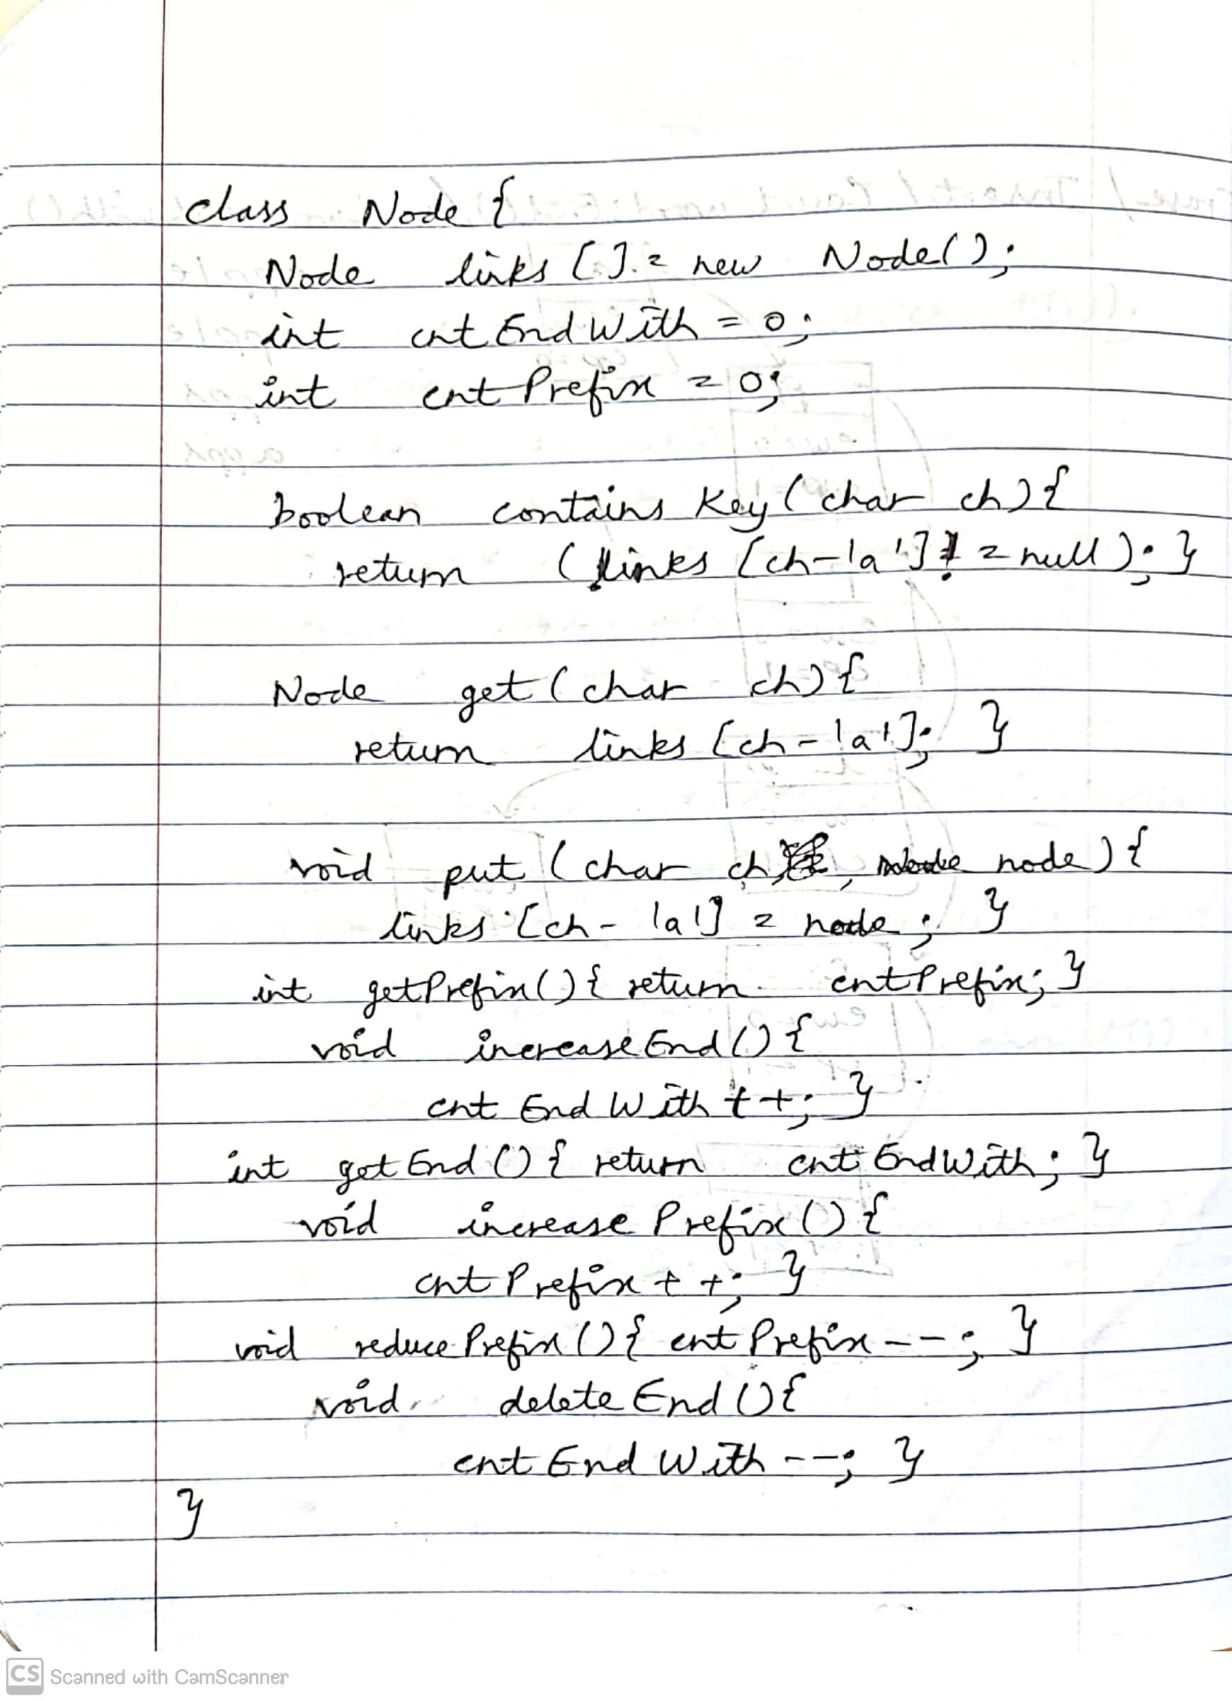 class Node {
Node links [] = new Node();
int cntEndWith = 0;
int cntPrefix = 0;
boolean containsKey (char ch) {
return (links [ch-'a'] != null); }
Node get (char ch) {
return links [ch-'a']; }
void put (char ch, node) {
links [ch-'a'] = node; }
int getPrefix() { return cntPrefix; }
void increaseEnd() {
cntEndWith ++; }
int getEnd () { return cntEndWith; }
void increasePrefix () {
cntPrefix ++; }
void reducePrefix () { cntPrefix --; }
void deleteEnd () {
cntEndWith --; }
}
CS Scanned with CamScanner